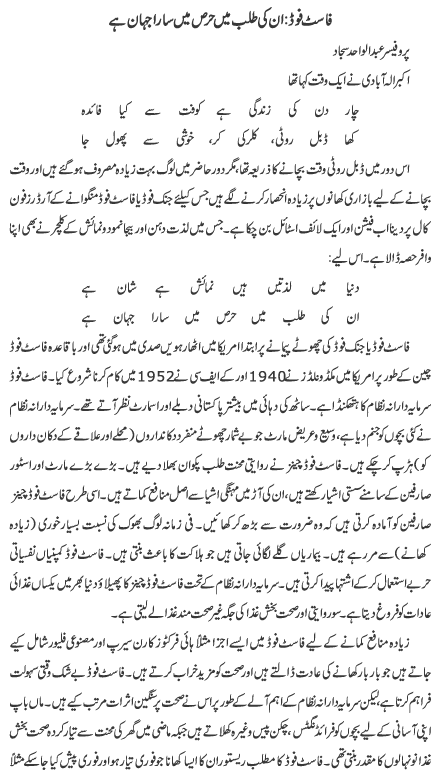 فاسٹ فوڈ: ان کی طلب میں حرص میں سارا جہان ہے
پروفیسر عبدالواحد سجاد
اکبر الہ آبادی نے ایک وقت کہا تھا
چار دن کی زندگی ہے کوفت سے کیا فائدہ
کھا ڈبل روٹی، کلرکی کر، خوشی سے پھول جا
اس دور میں ڈبل روٹی وقت بچانے کا ذریعہ تھا، مگر دور حاضر میں لوگ بہت زیادہ مصروف ہو گئے ہیں اور وقت
بچانے کے لیے بازاری کھانوں پر زیادہ انحصار کرنے لگے ہیں جس کیلئے جنک فوڈ یا فاسٹ فوڈ منگوانے کے آرڈرز فون
کال پر دینا اب فیشن اور ایک لائف اسٹائل بن چکا ہے۔ جس میں لذت دہن اور بیجا نمود و نمائش کے کلچر نے بھی اپنا
وافر حصہ ڈالا ہے۔ اس لیے:
دنیا میں لذتیں ہیں نمائش ہے شان ہے
ان کی طلب میں حرص میں سارا جہان ہے
فاسٹ فوڈ یا جنک فوڈ کی چھوٹے پیمانے پر ابتدا امریکا میں اٹھارھویں صدی میں ہو گئی تھی اور باقاعدہ فاسٹ فوڈ
چین کے طور پر امریکا میں مکڈونلڈز نے 1940 اور کے ایف سی نے 1952 میں کام کرنا شروع کیا۔ فاسٹ فوڈ
سرمایہ دارانہ نظام کا ہتھکنڈا ہے۔ ساٹھ کی دہائی میں بیشتر پاکستانی دبلے اور اسمارٹ نظر آتے تھے۔ سرمایہ دارانہ نظام
نے کئی بچوں کو جنم دیا ہے، وسیع و عریض مارٹ جو بے شمار چھوٹے منفرد دکانداروں (محلے اور علاقے کے دکان داروں
کو) ہڑپ کر چکے ہیں۔ فاسٹ فوڈ چینز نے روایتی محنت طلب پکوان بھلا دیے ہیں۔ بڑے بڑے مارٹ اور اسٹور
صارفین کے سامنے سستی اشیا رکھتے ہیں، ان کی آڑ میں مہنگی اشیا سے اصل منافع کماتے ہیں۔ اسی طرح فاسٹ فوڈ چینز
صارفین کو آمادہ کرتی ہیں کہ وہ ضرورت سے بڑھ کر کھائیں۔ فی زمانہ لوگ بھوک کی نسبت بسیار خوری (زیادہ
کھانے) سے مر رہے ہیں۔ بیماریاں گلے لگائی جاتی ہیں جو ہلاکت کا باعث بنتی ہیں۔ فاسٹ فوڈ کمپنیاں نفسیاتی
حربے استعمال کر کے اشتہا پیدا کرتی ہیں۔ سرمایہ دارانہ نظام کے تحت فاسٹ فوڈ چینز کا پھیلاؤ دنیا بھر میں یکساں غذائی
عادات کو فروغ دیتا ہے۔ سو روایتی اور صحت بخش غذا کی جگہ غیر صحت مند غذا لے لیتی ہے۔
زیادہ منافع کمانے کے لیے فاسٹ فوڈ میں ایسے اجزا مثلاً ہائی فرکٹوز کارن سیرپ اور مصنوعی فلیور شامل کیے
جاتے ہیں جو بار بار کھانے کی عادت ڈالتے ہیں اور صحت کو مزید خراب کرتے ہیں۔ فاسٹ فوڈ بے شک وقتی سہولت
فراہم کرتا ہے، لیکن سرمایہ دارانہ نظام کے اہم آلے کے طور پر اس نے صحت پر سنگین اثرات مرتب کیے ہیں۔ ماں باپ
اپنی آسانی کے لیے بچوں کو فرائڈ نگٹس، چکن پیس وغیرہ کھلاتے ہیں جبکہ ماضی میں گھر کی محنت سے تیار کردہ صحت بخش
غذا نونہالوں کا مقدر بنتی تھی۔ فاسٹ فوڈ کا مطلب ریستوران کا ایسا کھانا جو فوری تیار ہو اور فوری پیش کیا جا سکے مثلاً